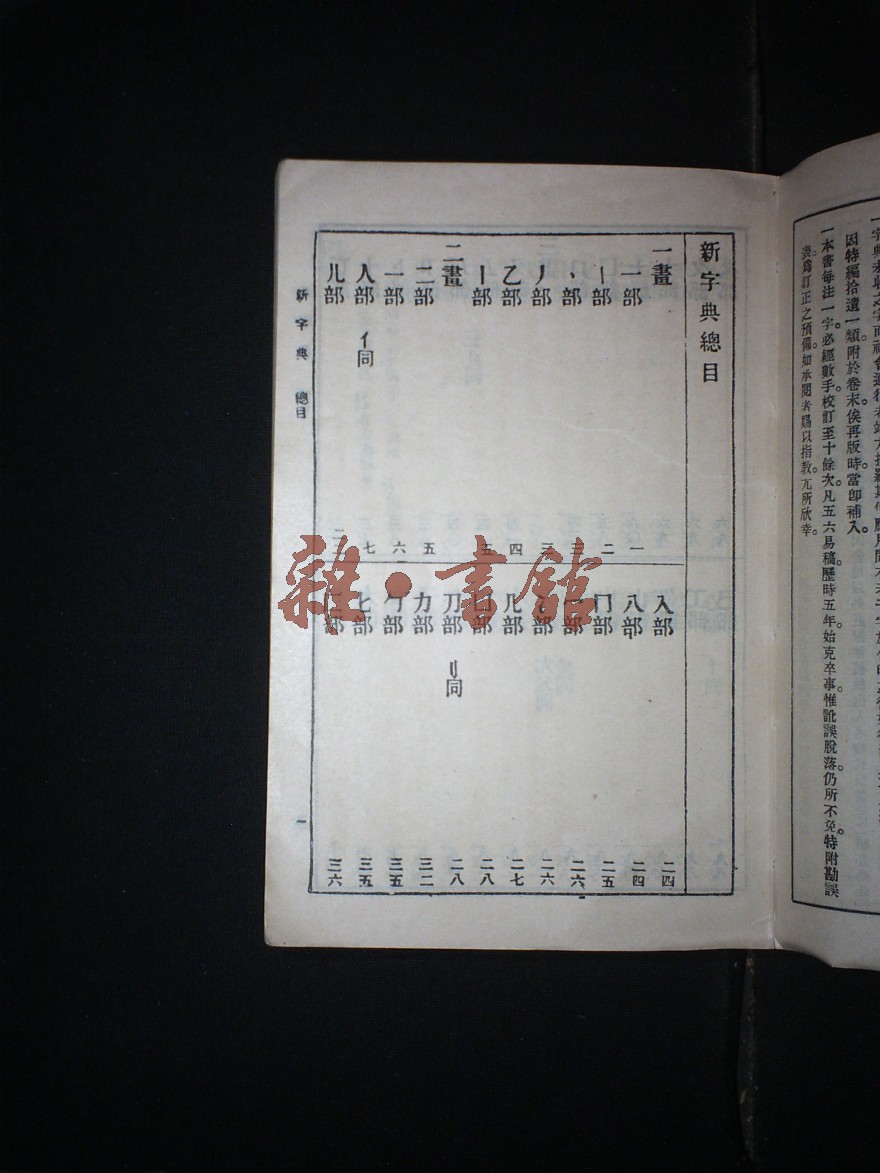 一字典未收之字而社會通行者
因特編拾遺一類。附於卷末。俟再版時。當卽補入。
一本書每注一字。必經數手校訂。至十餘次。凡五六易稿。歷時五年。始克卒事。惟訛誤脫落。仍所不免。特附勘誤
表。爲訂正之預備。如承閱者賜以指教。尤所欣幸。
新字典總目
一畫
一部 一
丨部 二
丶部 三
丿部 三
乙部 四
亅部 五
二畫
二部 五
亠部 六
人部 亻同 七
儿部 二三
入部 二四
八部 二四
冂部 二五
冖部 二六
冫部 二六
几部 二七
凵部 二八
刀部 刂同 二八
力部 三二
勹部 三五
匕部 三五
匚部 三六
新字典 總目
一
雜·書館